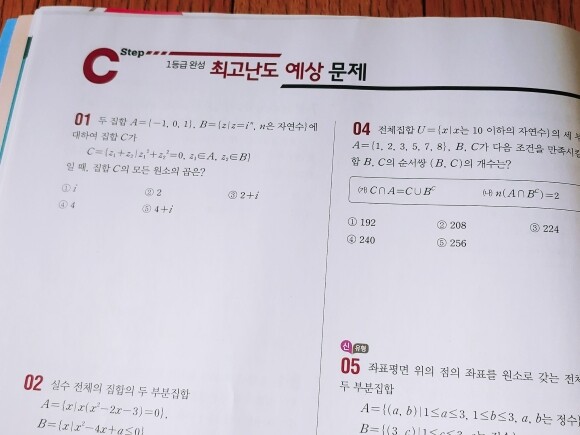 C Step
1등급 완성 최고난도 예상 문제
01 두 집합 A={-1, 0, 1}, B={z|z=iⁿ, n은 자연수}에
대하여 집합 C가
C={z₁+z₂|z₁²+z₂²=0, z₁∈A, z₂∈B}
일 때, 집합 C의 모든 원소의 곱은?
① i ② 2 ③ 2+i
④ 4 ⑤ 4+i
02 실수 전체의 집합의 두 부분집합
A={x|x(x²-2x-3)=0},
B={x|x²-4x+a≤0}
04 전체집합 U={x|x는 10 이하의 자연수}의 세
A={1, 2, 3, 5, 7, 8}, B, C가 다음 조건을 만족시킬
합 B, C의 순서쌍 (B, C)의 개수는?
㈎ C∩A=C∪Bᶜ ㈏ n(A∩Bᶜ)=2
① 192 ② 208 ③ 224
④ 240 ⑤ 256
신유형
05 좌표평면 위의 점의 좌표를 원소로 갖는 전체
두 부분집합
A={(a, b)|1≤a≤3, 1≤b≤3, a, b는 정수}